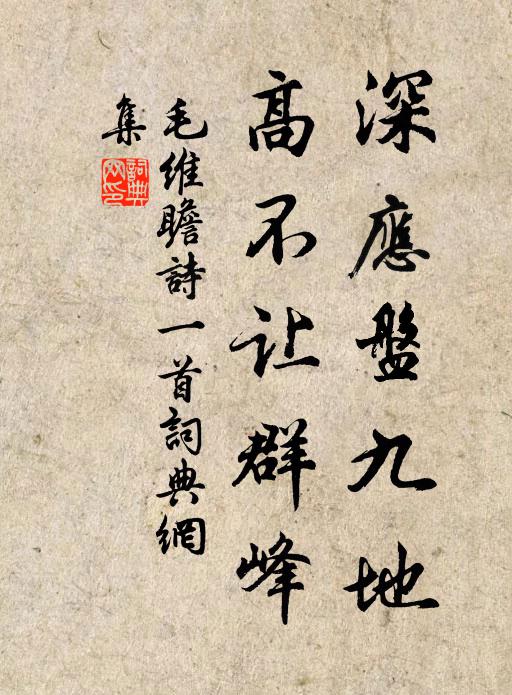 深應盤九地
高不让群峰
毛維瞻詩一首詞典網
集
詞典网印